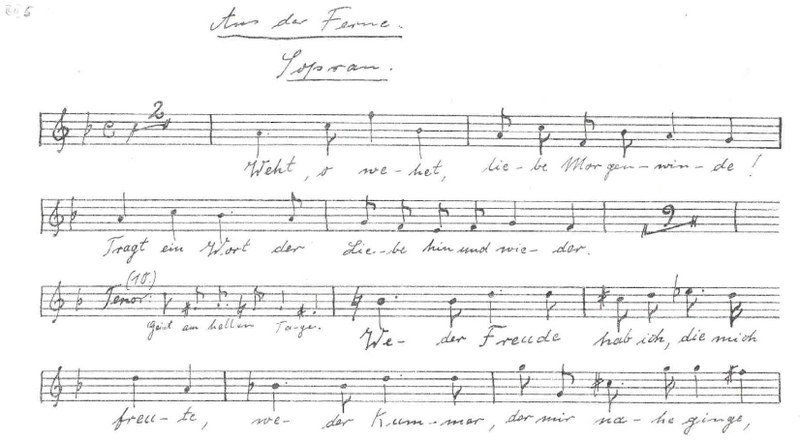 5
Aus der Ferne.
Sopran.
2
Weht, o we-het, lie-be Morgen-win-de!
Tragt ein Wort der Lie-be hin und wie-der.
9
(18.)
Tenor:
Geist am hellen Ta-ge.
We- der Freude hab ich, die mich
freu-te, we-der Kum-mer, der mir na-he ginge,